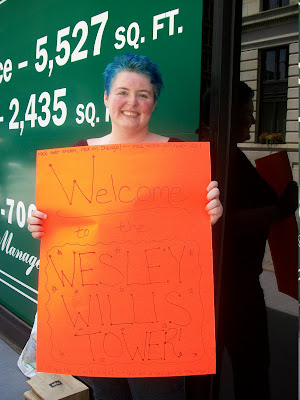 ce - 5,527 SQ. FT.
- 2,435 SQ.
-700
Manage
Welcome
to the
WESLEY
WILLIS
TOWER!